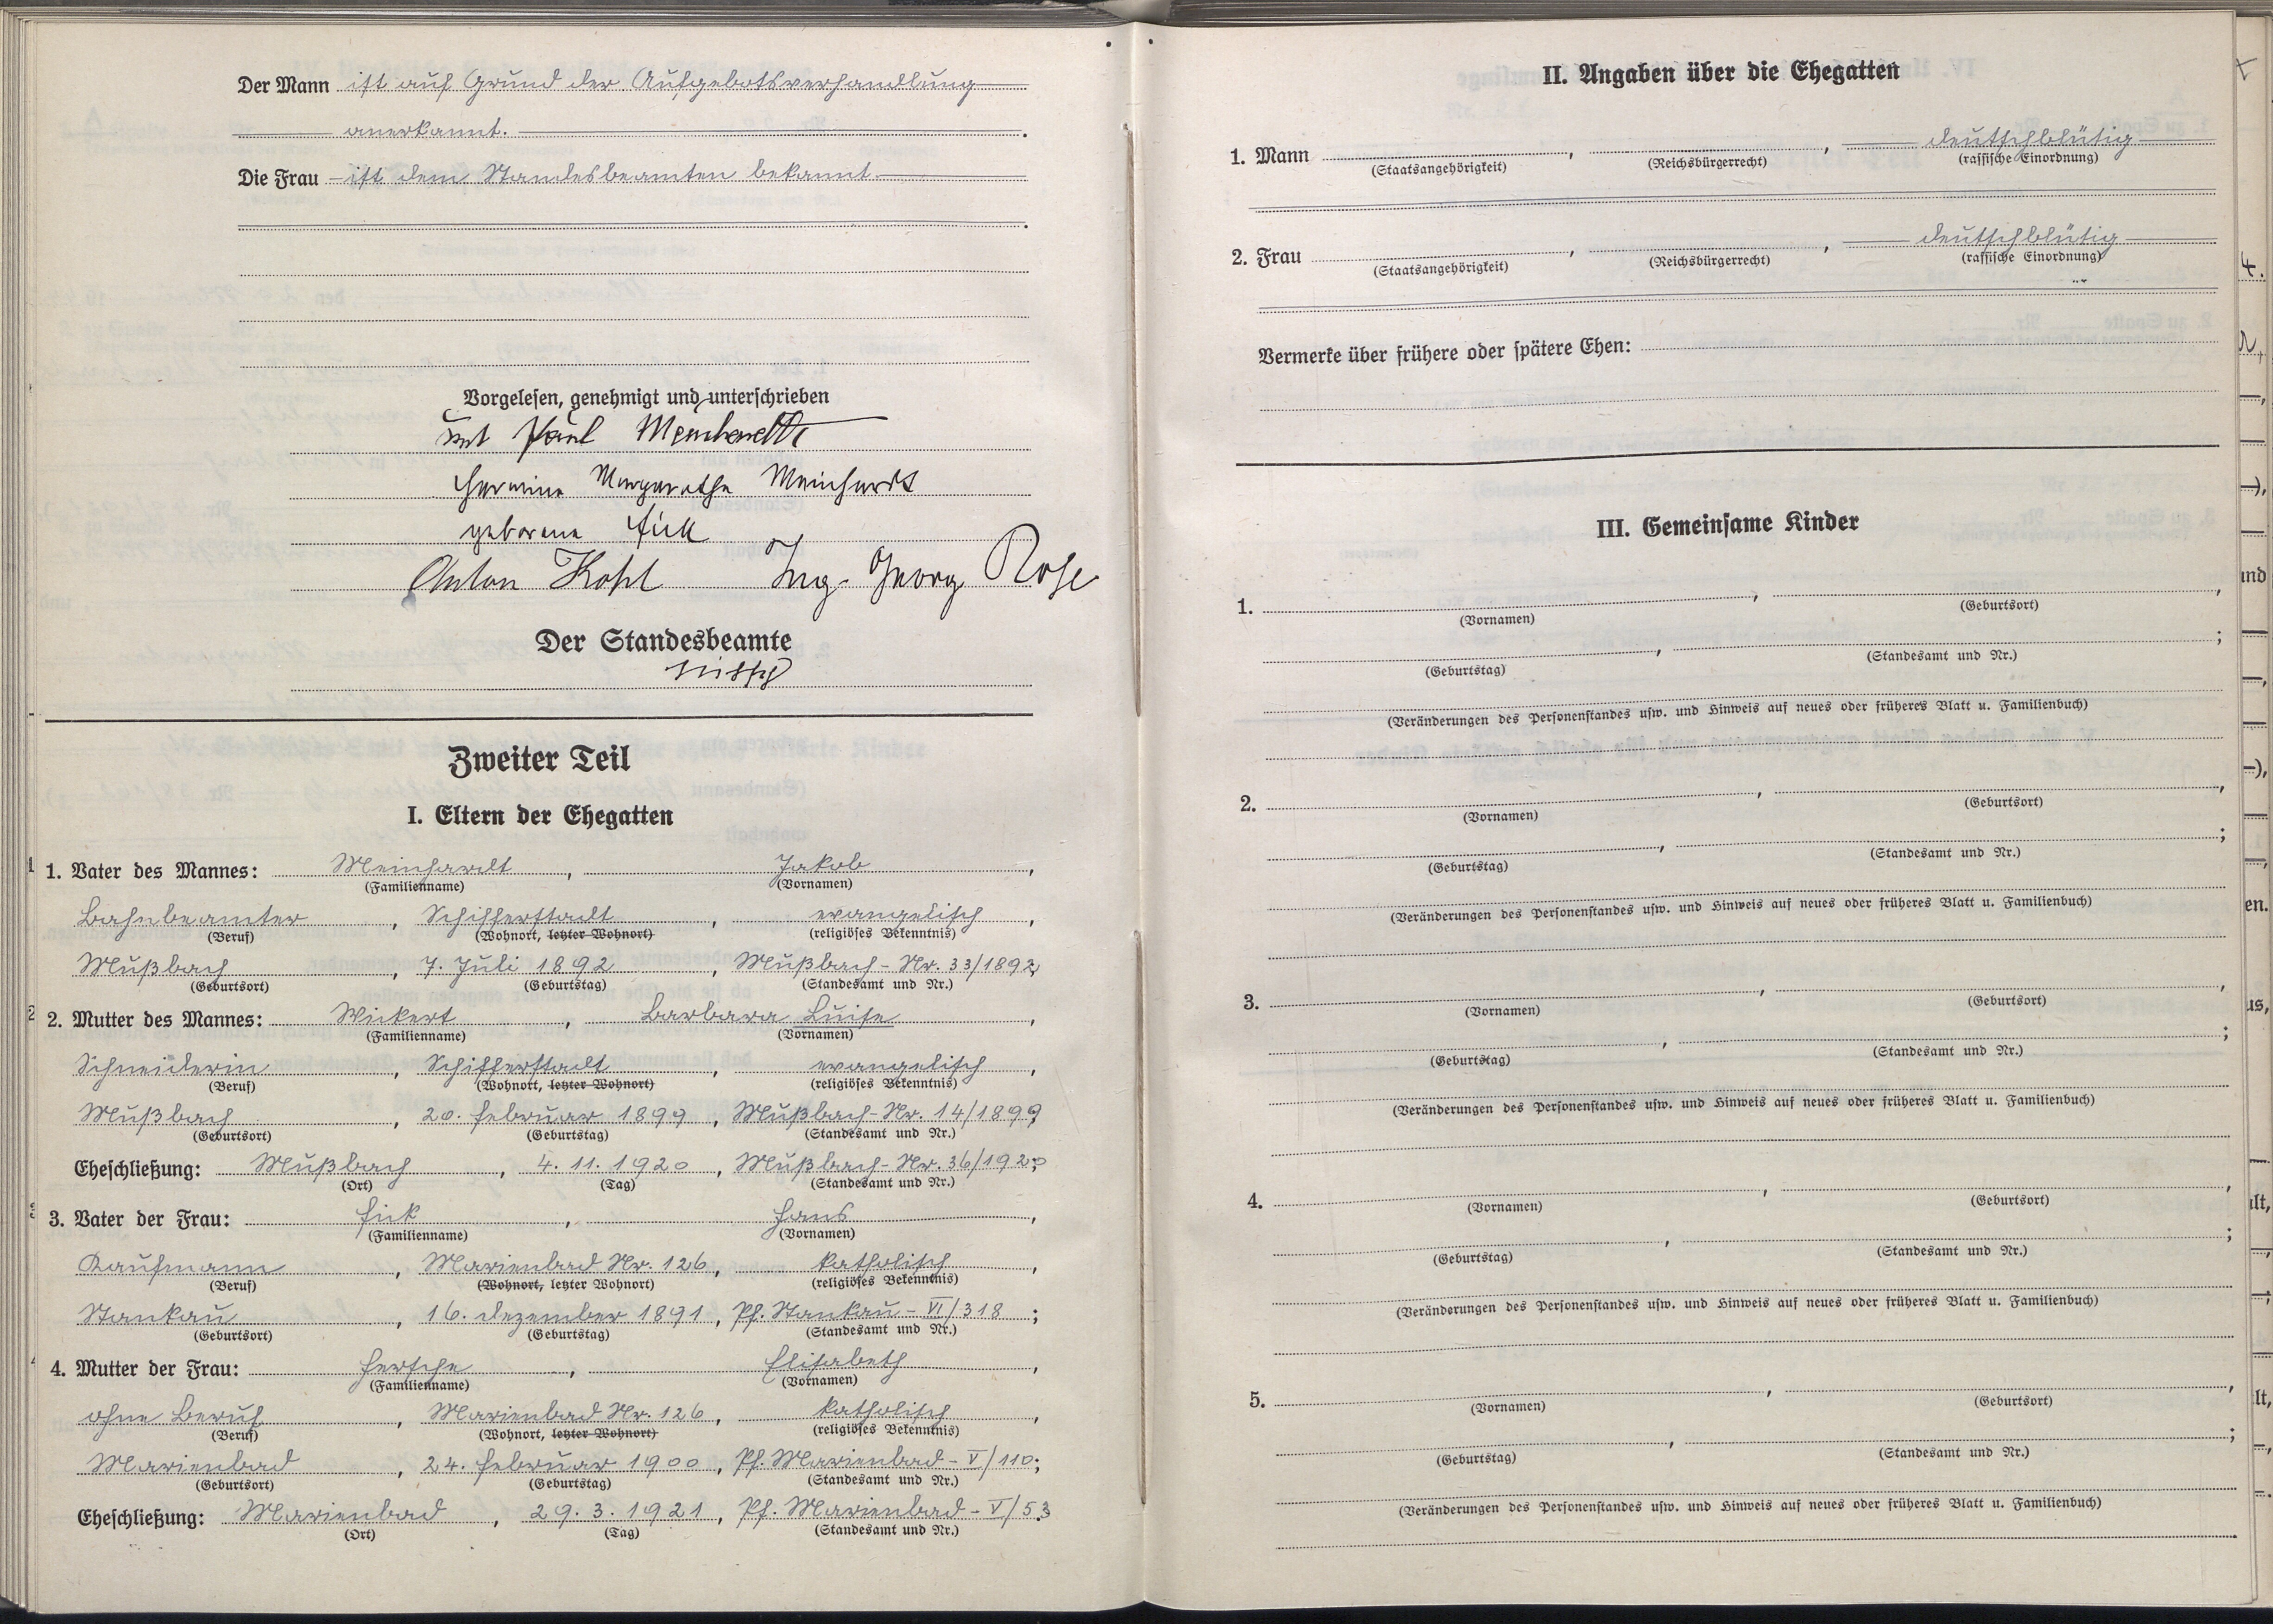 Der Mann ist auf Grund der Aufgebotsverhandlung
anerkannt.
Die Frau ist dem Standesbeamten bekannt
Vorgelesen, genehmigt und unterschrieben
Paul Meinhardt
Hermine Margarethe Meinhardt
geborene Fick
Anton Kohl Ing. Georg Rose
Der Standesbeamte
Zweiter Teil
I. Eltern der Ehegatten
1. Vater des Mannes: Meinhardt, Jakob,
(Familienname) (Vornamen)
Bahnbeamter, Schifferstadt, evangelisch,
(Beruf) (Wohnort, letzter Wohnort) (religiöses Bekenntnis)
Mußbach, 7. Juli 1892, Mußbach - Nr. 33/1892;
(Geburtsort) (Geburtstag) (Standesamt und Nr.)
2. Mutter des Mannes: Wickert, Barbara Luise,
(Familienname) (Vornamen)
Schneiderin, Schifferstadt, evangelisch,
(Beruf) (Wohnort, letzter Wohnort) (religiöses Bekenntnis)
Mußbach, 20. Februar 1899, Mußbach - Nr. 14/1899;
(Geburtsort) (Geburtstag) (Standesamt und Nr.)
Eheschließung: Mußbach, 4. 11. 1920, Mußbach - Nr. 36/1920;
(Ort) (Tag) (Standesamt und Nr.)
3. Vater der Frau: Fick, Hans,
(Familienname) (Vornamen)
Kaufmann, Marienbad Nr. 126, katholisch,
(Beruf) (Wohnort, letzter Wohnort) (religiöses Bekenntnis)
Stankau, 16. Dezember 1891, Pf. Stankau - VI/318;
(Geburtsort) (Geburtstag) (Standesamt und Nr.)
4. Mutter der Frau: Hersche, Elisabeth,
(Familienname) (Vornamen)
ohne Beruf, Marienbad Nr. 126, katholisch,
(Beruf) (Wohnort, letzter Wohnort) (religiöses Bekenntnis)
Marienbad, 24. Februar 1900, Pf. Marienbad - V/110;
(Geburtsort) (Geburtstag) (Standesamt und Nr.)
Eheschließung: Marienbad, 29. 3. 1921, Pf. Marienbad - V/53
(Ort) (Tag) (Standesamt und Nr.)
II. Angaben über die Ehegatten
1. Mann , , deutschblütig
(Staatsangehörigkeit) (Reichsbürgerrecht) (rassische Einordnung)
2. Frau , , deutschblütig
(Staatsangehörigkeit) (Reichsbürgerrecht) (rassische Einordnung)
Vermerke über frühere oder spätere Ehen:
III. Gemeinsame Kinder
1. , ,
(Vornamen) (Geburtsort)
, ;
(Geburtstag) (Standesamt und Nr.)
(Veränderungen des Personenstandes usw. und Hinweis auf neues oder früheres Blatt u. Familienbuch)
2. , ,
(Vornamen) (Geburtsort)
, ;
(Geburtstag) (Standesamt und Nr.)
(Veränderungen des Personenstandes usw. und Hinweis auf neues oder früheres Blatt u. Familienbuch)
3. , ,
(Vornamen) (Geburtsort)
, ;
(Geburtstag) (Standesamt und Nr.)
(Veränderungen des Personenstandes usw. und Hinweis auf neues oder früheres Blatt u. Familienbuch)
4. , ,
(Vornamen) (Geburtsort)
, ;
(Geburtstag) (Standesamt und Nr.)
(Veränderungen des Personenstandes usw. und Hinweis auf neues oder früheres Blatt u. Familienbuch)
5. , ,
(Vornamen) (Geburtsort)
, ;
(Geburtstag) (Standesamt und Nr.)
(Veränderungen des Personenstandes usw. und Hinweis auf neues oder früheres Blatt u. Familienbuch)